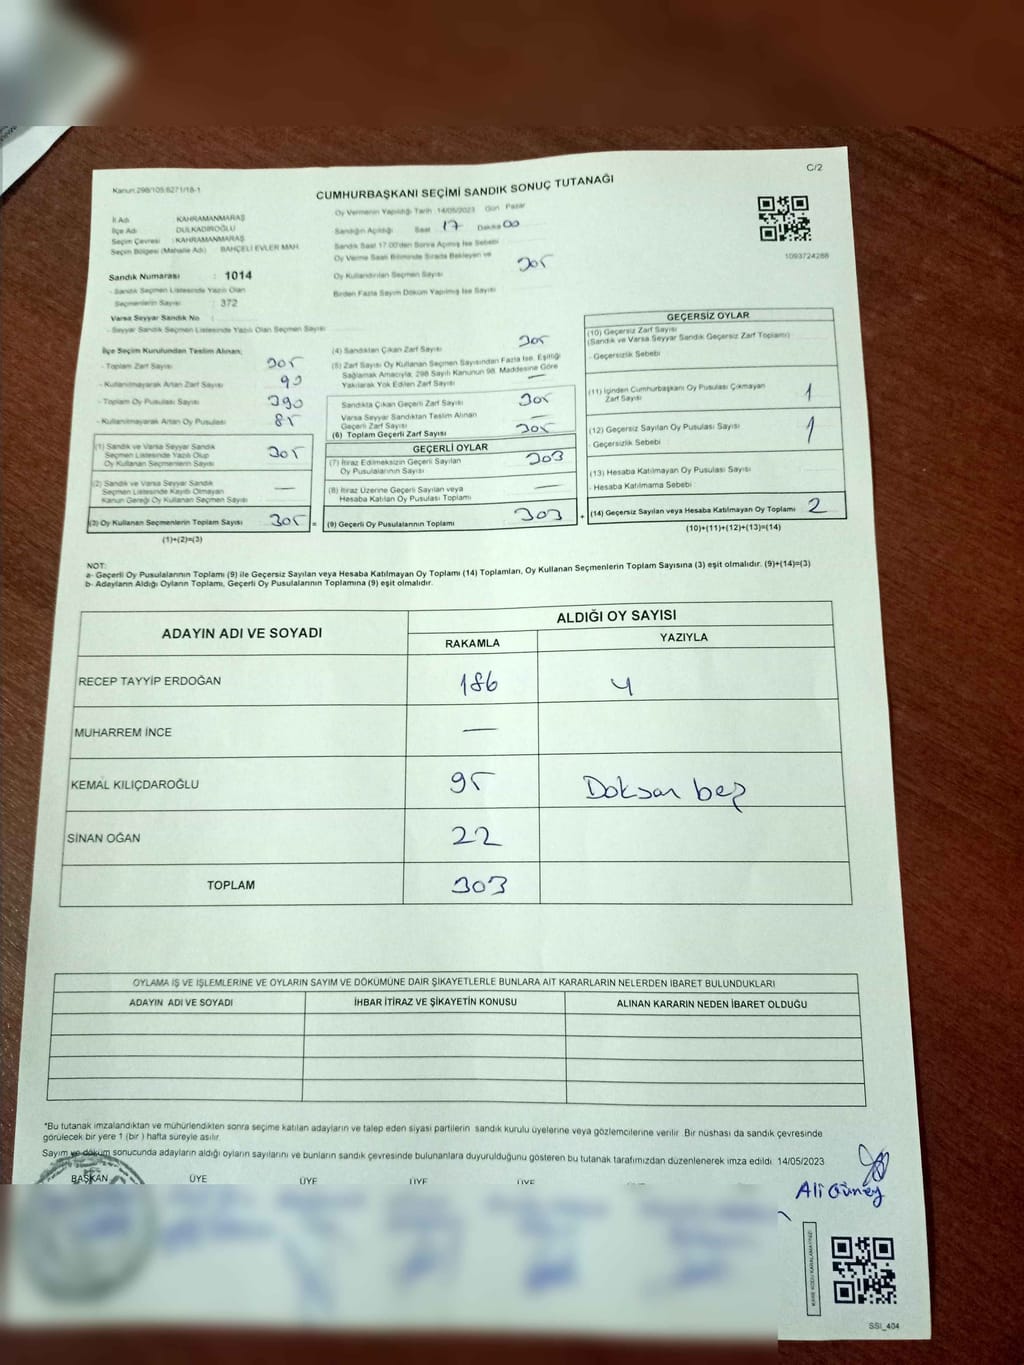 C/2
Kanun:298/105;6271/18-1
CUMHURBAŞKANI SEÇİMİ SANDIK SONUÇ TUTANAĞI
İl Adı : KAHRAMANMARAŞ
İlçe Adı : DULKADİROĞLU
Seçim Çevresi : KAHRAMANMARAŞ
Seçim Bölgesi (Mahalle Adı) : BAHÇELİ EVLER MAH.
Sandık Numarası : 1014
- Sandık Seçmen Listesinde Yazılı Olan
Seçmenlerin Sayısı : 372
Varsa Seyyar Sandık No
- Seyyar Sandık Seçmen Listesinde Yazılı Olan Seçmen Sayısı
Oy Vermenin Yapıldığı Tarih :14/05/2023 Gün : Pazar
Sandığın Açıldığı Saat 17 Dakika 00
Sandık Saat 17.00'den Sonra Açılmış İse Sebebi
Oy Verme Saati Bitiminde Sırada Bekleyen ve
Oy Kullandırılan Seçmen Sayısı 305
Birden Fazla Sayım Döküm Yapılmış İse Sayısı
1093724288
İlçe Seçim Kurulundan Teslim Alınan;
- Toplam Zarf Sayısı 305
- Kullanılmayarak Artan Zarf Sayısı 90
- Toplam Oy Pusulası Sayısı 390
- Kullanılmayarak Artan Oy Pusulası 85
(1) Sandık ve Varsa Seyyar Sandık
Seçmen Listesinde Yazılı Olup
Oy Kullanan Seçmenlerin Sayısı 305
(2) Sandık ve Varsa Seyyar Sandık
Seçmen Listesinde Kayıtlı Olmayan
Kanun Gereği Oy Kullanan Seçmen Sayısı —
(3) Oy Kullanan Seçmenlerin Toplam Sayısı 305 =
(1)+(2)=(3)
(4) Sandıktan Çıkan Zarf Sayısı 305
(5) Zarf Sayısı Oy Kullanan Seçmen Sayısından Fazla İse, Eşitliği
Sağlamak Amacıyla, 298 Sayılı Kanunun 98. Maddesine Göre
Yakılarak Yok Edilen Zarf Sayısı —
Sandıkta Çıkan Geçerli Zarf Sayısı 305
Varsa Seyyar Sandıktan Teslim Alınan
Geçerli Zarf Sayısı —
(6) Toplam Geçerli Zarf Sayısı 305
GEÇERLİ OYLAR
(7) İtiraz Edilmeksizin Geçerli Sayılan
Oy Pusulalarının Sayısı 303
(8) İtiraz Üzerine Geçerli Sayılan veya
Hesaba Katılan Oy Pusulası Toplamı —
(9) Geçerli Oy Pusulalarının Toplamı 303 +
GEÇERSİZ OYLAR
(10) Geçersiz Zarf Sayısı
(Sandık ve Varsa Seyyar Sandık Geçersiz Zarf Toplamı)
- Geçersizlik Sebebi
(11) İçinden Cumhurbaşkanı Oy Pusulası Çıkmayan
Zarf Sayısı 1
(12) Geçersiz Sayılan Oy Pusulası Sayısı 1
- Geçersizlik Sebebi
(13) Hesaba Katılmayan Oy Pusulası Sayısı
- Hesaba Katılmama Sebebi
(14) Geçersiz Sayılan veya Hesaba Katılmayan Oy Toplamı 2
(10)+(11)+(12)+(13)=(14)
NOT:
a- Geçerli Oy Pusulalarının Toplamı (9) ile Geçersiz Sayılan veya Hesaba Katılmayan Oy Toplamı (14) Toplamları, Oy Kullanan Seçmenlerin Toplam Sayısına (3) eşit olmalıdır. (9)+(14)=(3)
b- Adayların Aldığı Oyların Toplamı, Geçerli Oy Pusulalarının Toplamına (9) eşit olmalıdır.
ADAYIN ADI VE SOYADI ALDIĞI OY SAYISI
RAKAMLA YAZIYLA
RECEP TAYYİP ERDOĞAN 186 Y
MUHARREM İNCE —
KEMAL KILIÇDAROĞLU 95 Doksan beş
SİNAN OĞAN 22
TOPLAM 303
OYLAMA İŞ VE İŞLEMLERİNE VE OYLARIN SAYIM VE DÖKÜMÜNE DAİR ŞİKAYETLERLE BUNLARA AİT KARARLARIN NELERDEN İBARET BULUNDUKLARI
ADAYIN ADI VE SOYADI İHBAR İTİRAZ VE ŞİKAYETİN KONUSU ALINAN KARARIN NEDEN İBARET OLDUĞU
*Bu tutanak imzalandıktan ve mühürlendikten sonra seçime katılan adayların ve talep eden siyasi partilerin sandık kurulu üyelerine veya gözlemcilerine verilir. Bir nüshası da sandık çevresinde
görülecek bir yere 1 (bir ) hafta süreyle asılır.
Sayım ve döküm sonucunda adayların aldığı oyların sayılarını ve bunların sandık çevresinde bulunanlara duyurulduğunu gösteren bu tutanak tarafımızdan düzenlenerek imza edildi. 14/05/2023
BAŞKAN ÜYE ÜYE ÜYE ÜYE
Ali Güney
SSI_404